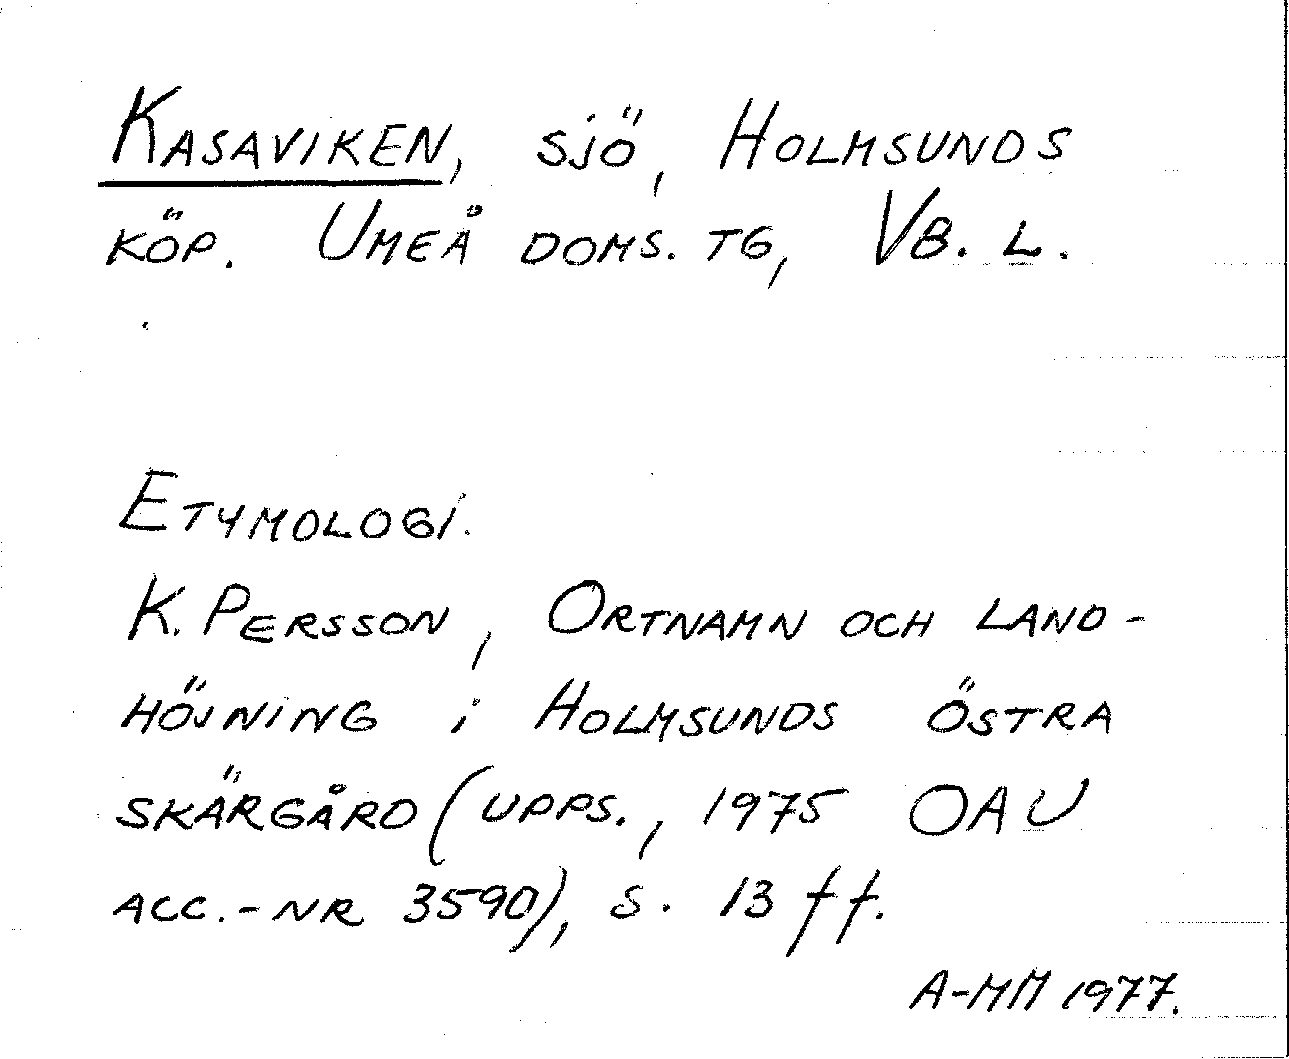 KASAVIKEN, SJÖ, HOLMSUNDS
KÖP. UMEÅ DOMS. TG, VB. L.
ETYMOLOGI.
K. PERSSON, ORTNAMN OCH LAND-
HÖJNING i HOLMSUNDS ÖSTRA
SKÄRGÅRD (UPPS., 1975 OAU
ACC.-NR 3590), S. 13 ff.
A-MM 1977.